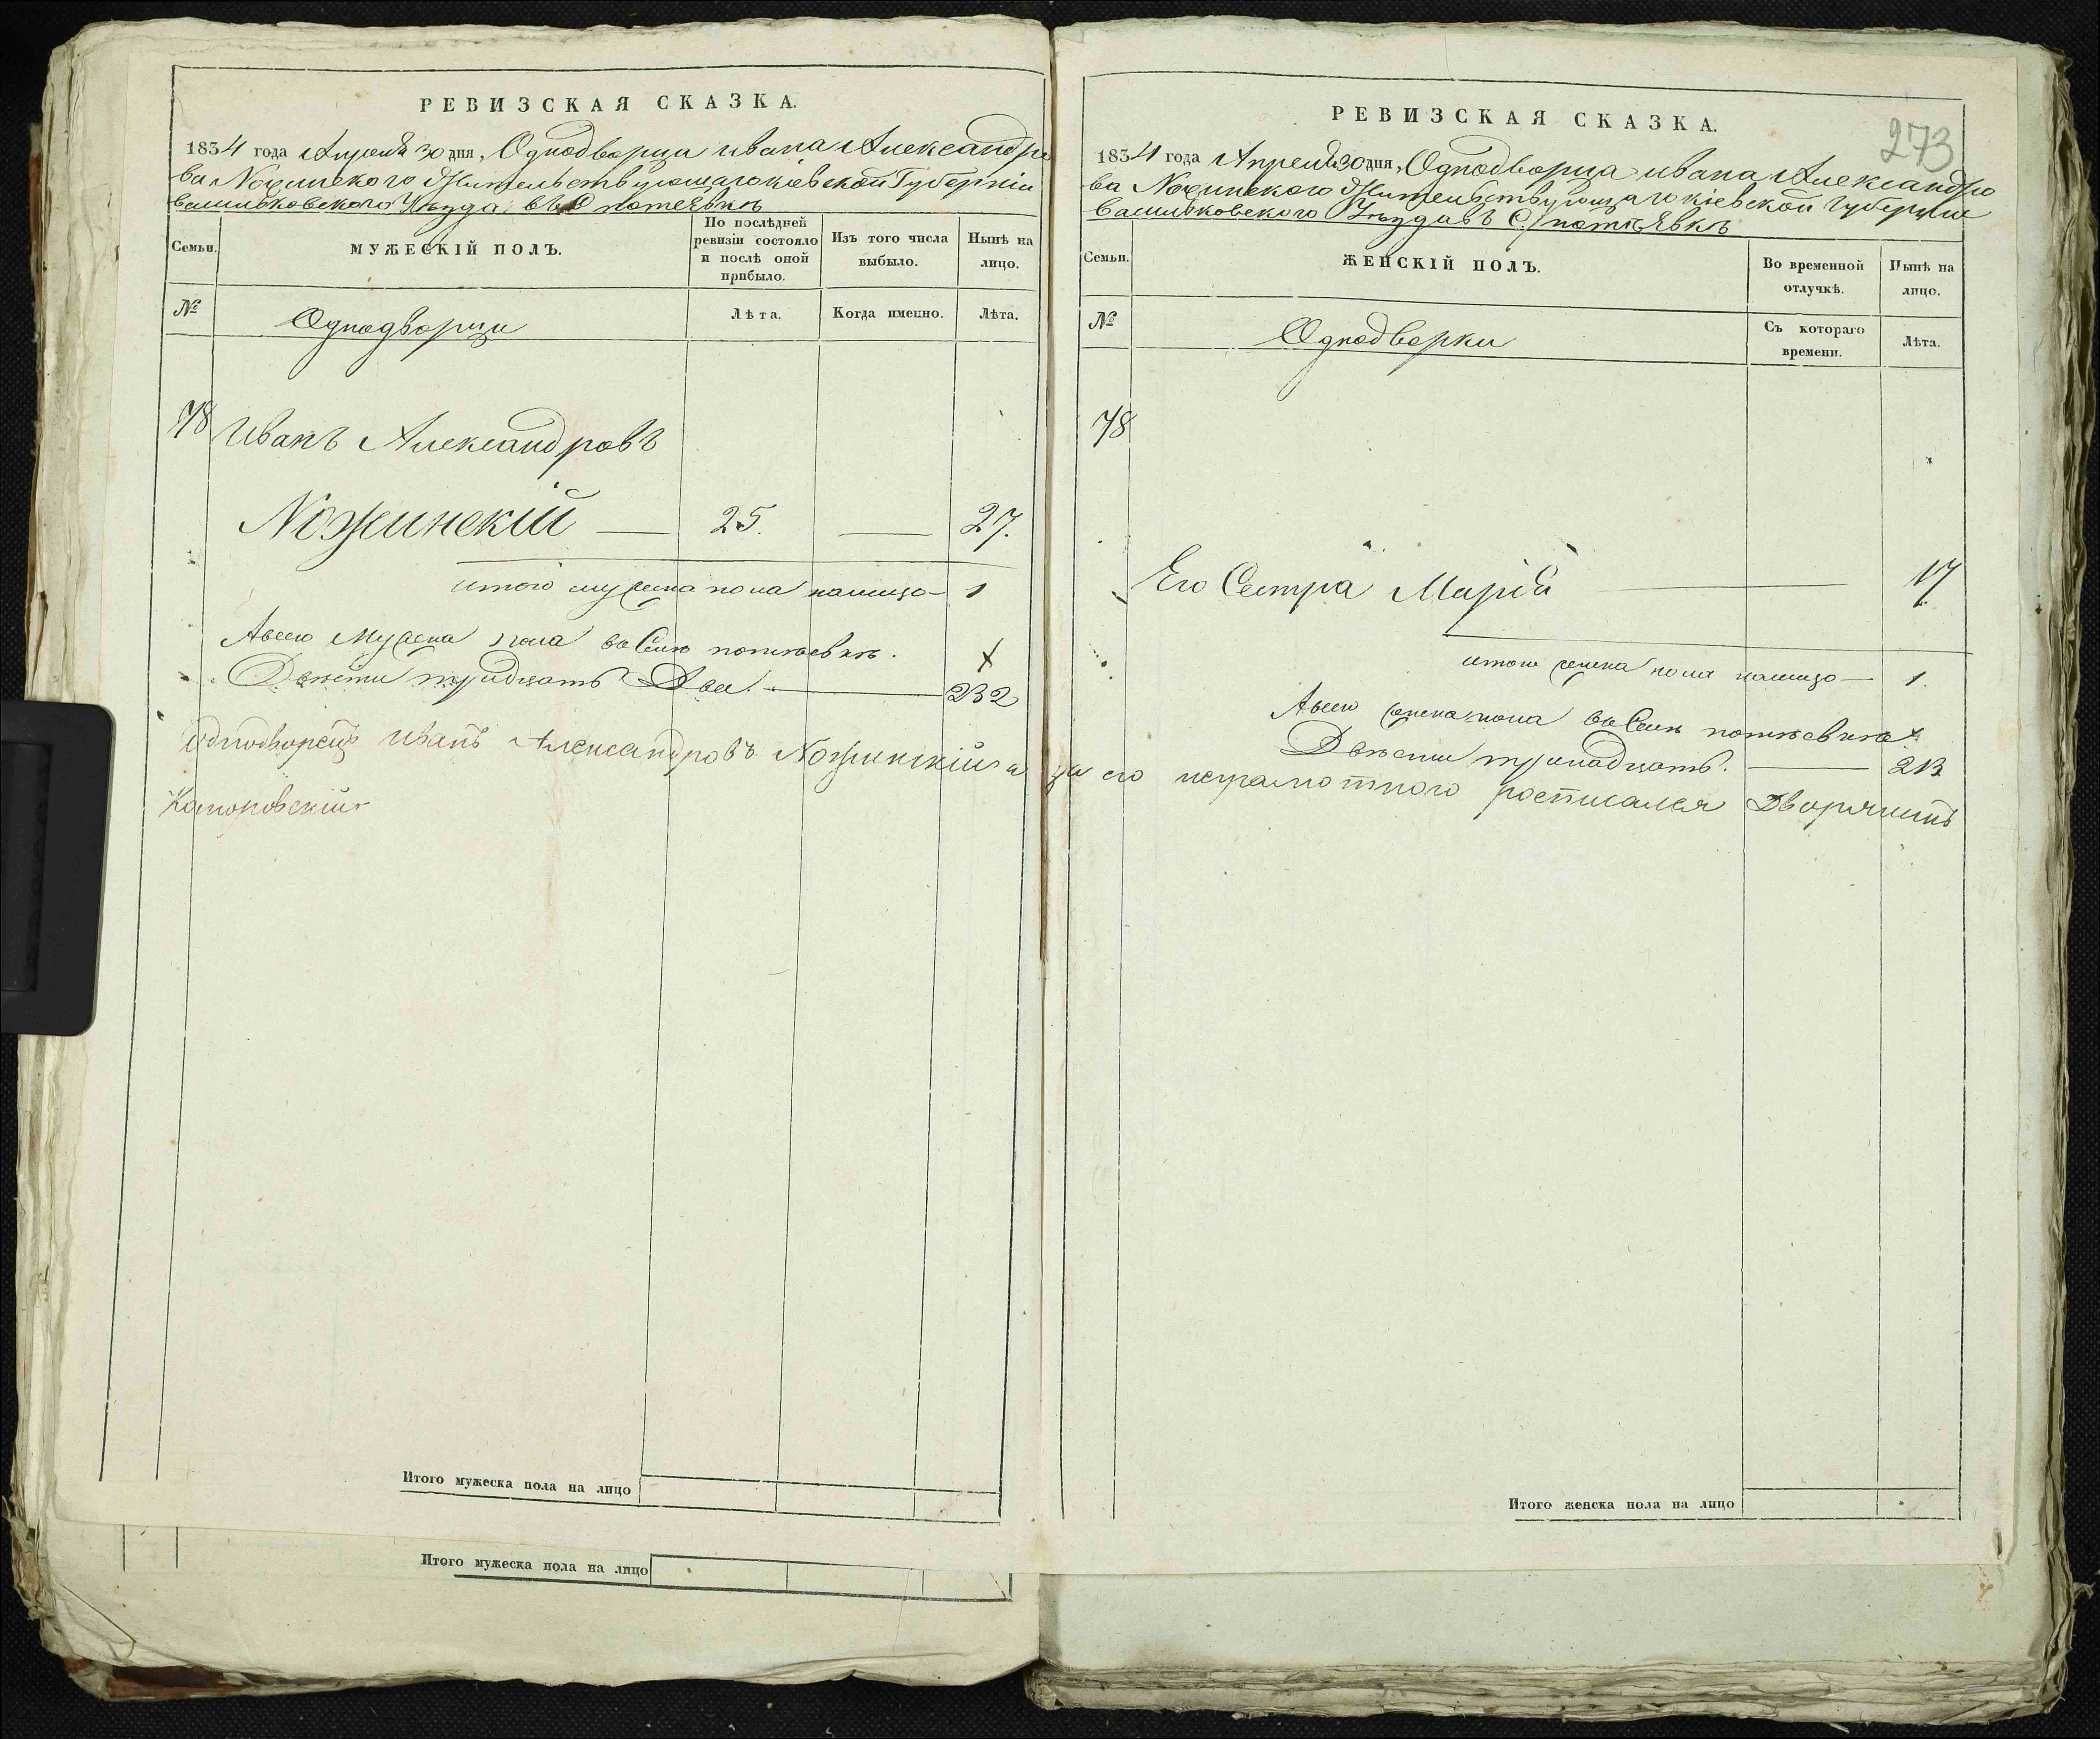 РЕВИЗСКАЯ СКАЗКА.
1834 года Апреля 30 дня, Однодворца ивана Александро
ва Ножинского Жительствующаго кіевской Губерніи
Васильковского Уезда, въ С потеевкѣ
Семьи.
МУЖЕСКІЙ ПОЛЪ.
По послѣдней ревизіи состояло и послѣ оной прибыло.
Изъ того числа выбыло.
Нынѣ на лицо.
№
Однодворци
Лѣта.
Когда именно.
Лѣта.
78 Иванъ Александровъ
Ножинскій — 25. — 27.
итого мужеска пола налицо — 1
Авсею Мужеска пола въ Селѣ потиевкѣ.
Двѣсти тридцать Два. — 232
Однодворецъ Иванъ Александровъ Ножинскій а за его неграмотного росписался Дворянинъ
Каморовскій
Итого мужеска пола на лицо
Итого мужеска пола на лицо
РЕВИЗСКАЯ СКАЗКА.
273
1834 года Апреля 30 дня, Однодворца ивана Александро
ва Ножинского Жительствующаго кіевской губерніи
Васильковского Уезда въ С. потіевкѣ
Семьи.
ЖЕНСКІЙ ПОЛЪ.
Во временной отлучкѣ.
Нынѣ на лицо.
№
Однодворки
Съ котораго времени.
Лѣта.
78
Его Сестра Марія — 17
итого женска пола налицо — 1.
Авсею женска пола въ Селѣ потиевкѣ
Двѣсти тринадцать. — 213
Итого женска пола на лицо